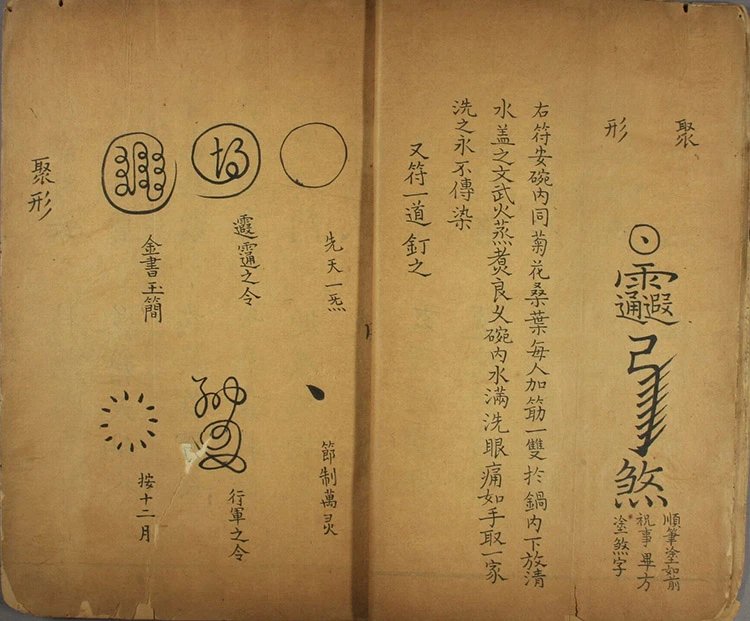 聚
形
煞
順筆塗如前
祝事畢方
塗煞字
右符安碗内同菊花桑葉每人加筯一雙扵鍋内下放清
水盖之文武火蒸煑良久碗内水满洗眼痛如手取一家
洗之永不傳染
又符一道釘之
先天一炁
節制萬灵
靈之令
行軍之令
金書玉簡
按十二月
聚形